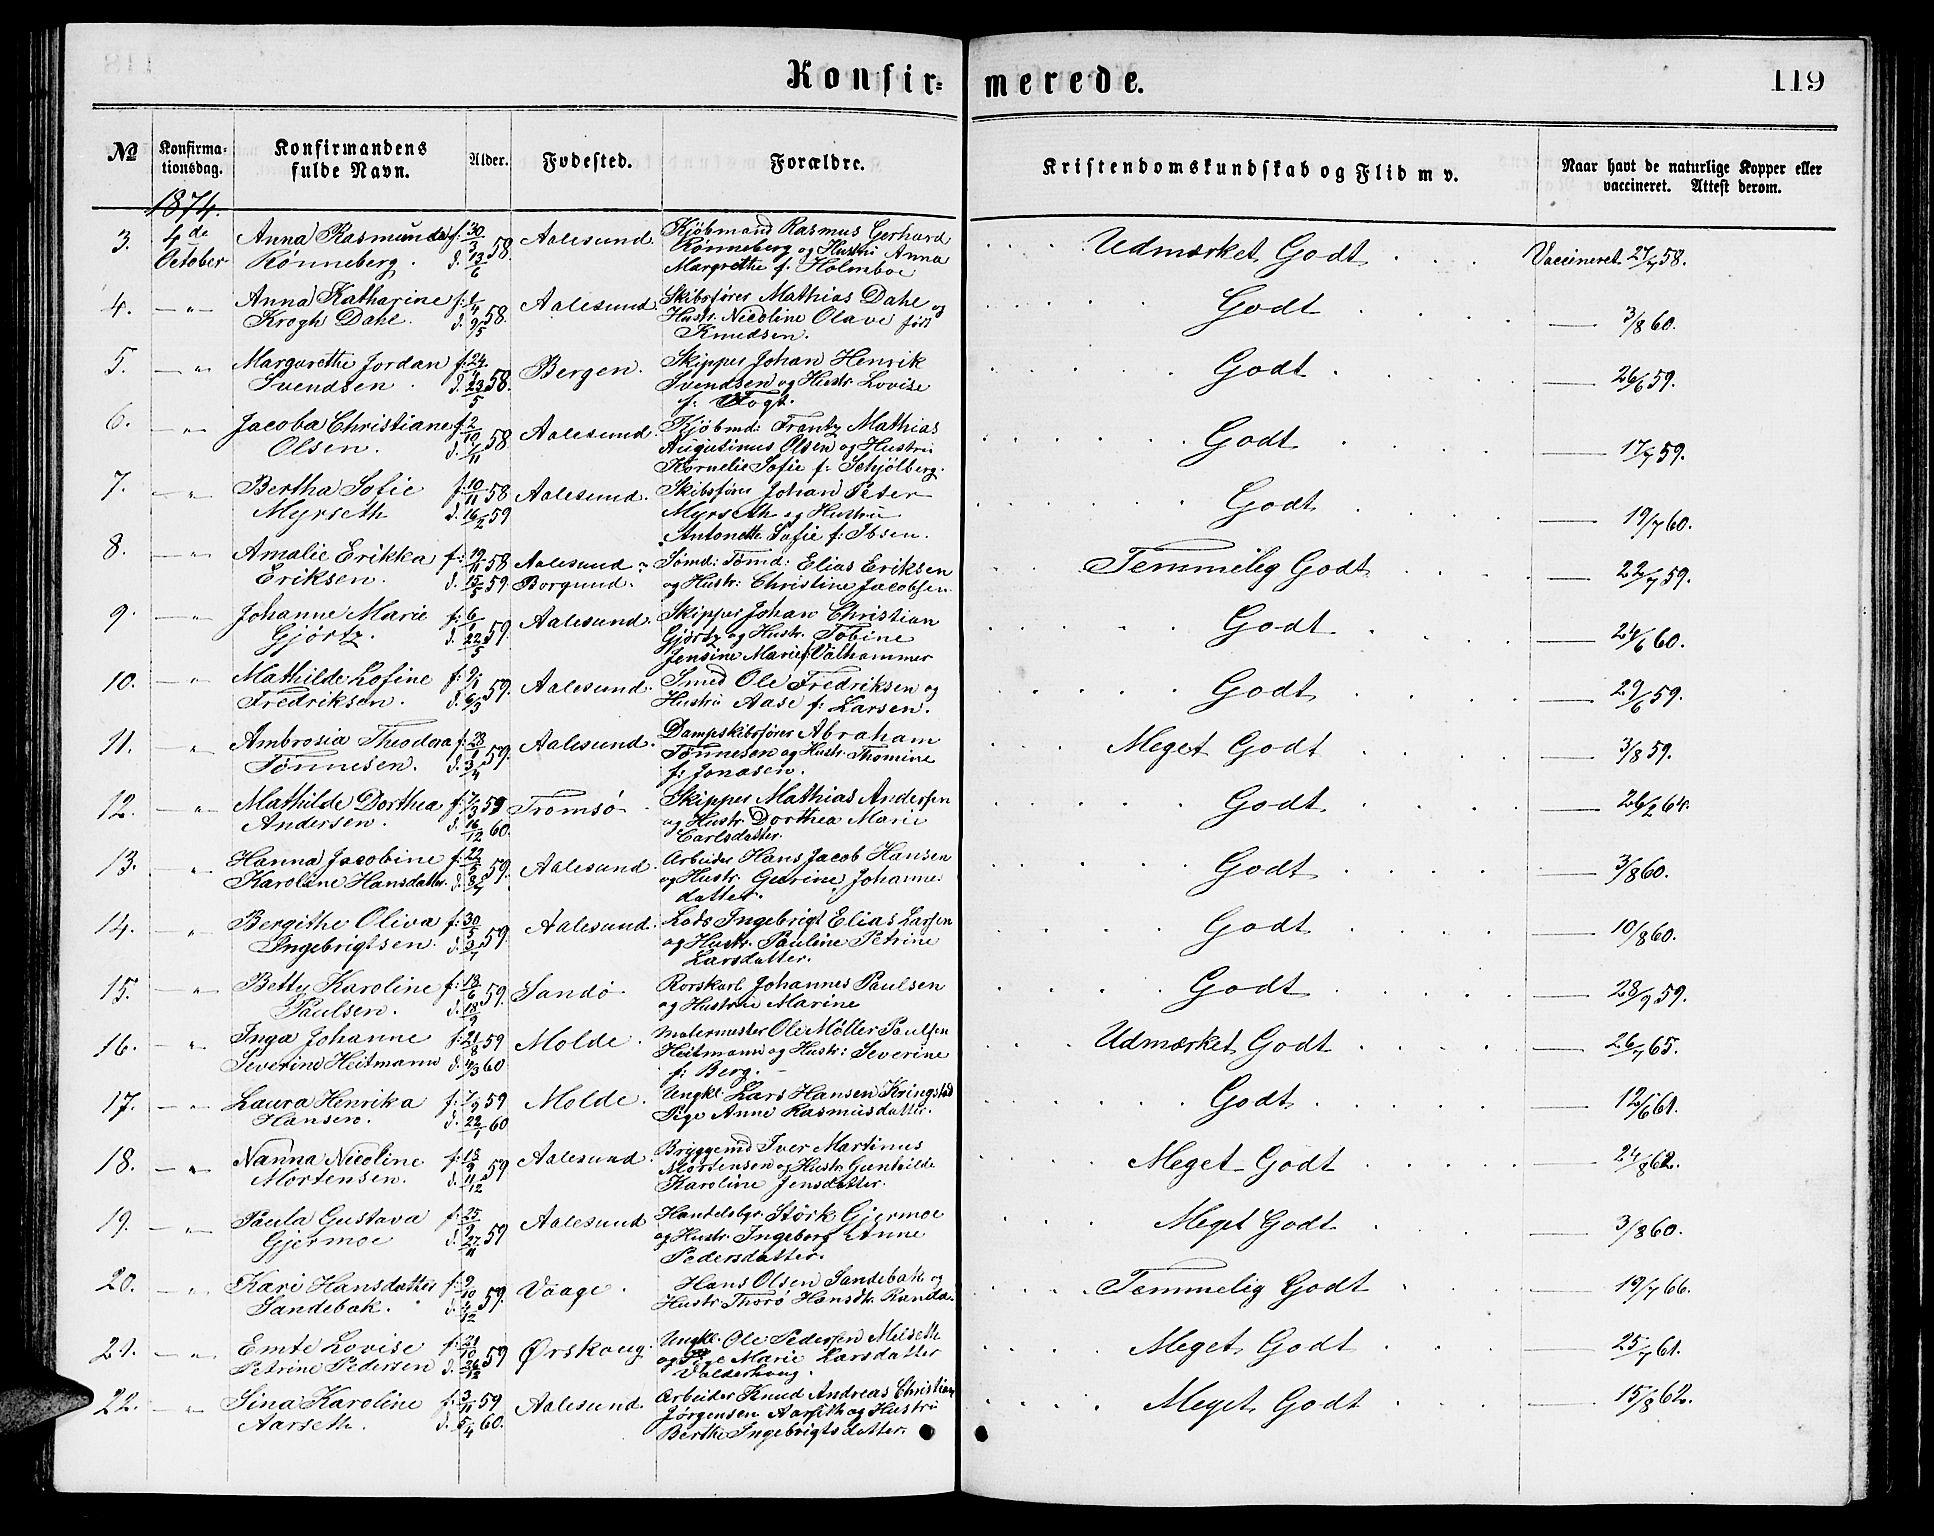 Konfir=
merede.
119
No
Konfirma-
tionsdag.
Konfirmandens
fulde Navn.
Alder.
Fødested.
Forældre.
Kristendomskundskab og Flid m v.
Naar havt de naturlige Kopper eller
vaccineret. Attest derom.
1874.
3. 4de October Anna Rasmunda Rønneberg. f. 30/3 d. 13/6 58. Aalesund.
Kjøbmand Rasmus Gerhard
Rønneberg og Hustru Anna
Margrethe f. Holmboe
Udmærket Godt Vaccineret 27/7 58.
4. — " — Anna Katharine Krogh Dahl. f. 1/4 d. 9/5 58. Aalesund.
Skibsfører Mathias Dahl og
Hustr. Nicoline Olave født
Knudsen.
Godt — 3/8 60.
5. — " Margarethe Jordan Svendsen f. 24/4 d. 23/5 58. Bergen.
Skipper Johan Henrik
Svendsen og Hustr. Lovise
f. Vogt.
Godt — 26/6 59.
6. — " Jacoba Christiane Olsen. f. 2/10 d. 7/11 58 Aalesund.
Kjøbmd: Frantz Mathias
Augustinus Olsen og Hustru
Kornelie Sofie f. Schjölberg.
Godt — 17/7 59.
7. — " Bertha Sofie Myrseth f. 10/11 58 d. 16/2 59 Aalesund.
Skibsfører Johan Peter
Myrseth og Hustru
Antonette Sofie f. Ibsen.
Godt — 19/7 60.
8. — " — Amalie Erikka Eriksen. f. 19/11 58 d. 15/5 59 Aalesund Borgund.
Sømd: Tømd: Elias Eriksen
og Hustr: Christine Jacobsen
Temmelig Godt — 22/7 59.
9. — " Johanne Marie Gjørtz. f. 6/1 d. 22/5 59. Aalesund.
Skipper Johan Christian
Gjørtz og Hustr. Tobine
Jensine Marie f. Valhammer
Godt — 24/6 60.
10. — " Mathilde Lofine Fredriksen. f. 9/1 d. 6/3 59. Aalesund.
Smed Ole Fredriksen og
Hustru Aase f. Larsen.
Godt — 29/6 59.
11. " Ambrosia Theodora Tönnesen. f. 23/1 d. 3/4 59. Aalesund.
Dampskibsfører Abraham
Tönnesen og Hustr. Thomine
f. Jonasen.
Meget Godt — 3/8 59.
12. — " Mathilde Dorthea Andersen. f. 7/3 59 d. 16/12 60. Tromsö
Skipper Mathias Andersen
og Hustr. Dorthea Marie
Carlsdatter.
Godt — 26/2 64.
13. — " Hanna Jacobine Karoline Hansdatter. f. 22/5 d. 3/7 59. Aalesund.
Arbeider Hans Jacob Hansen
og Hustr. Gurine Johannes
datter.
Godt — 3/8 60.
14. — " Bergithe Oliva Ingebrigtsen. f. 30/5 d. 3/7 59. Aalesund.
Lods Ingebrigt Elias Larsen
og Hustr. Pauline Petrine
Larsdatter.
Godt — 10/8 60.
15. — " Betty Karoline Paulsen. f. 13/6 d. 18/9 59. Sandö
Rorskarl Johannes Paulsen
og Hustrue Marine
Godt — 28/9 59.
16. — " Inga Johanne Severine Heitmann f. 21/8 59 d. 4/3 60 Molde.
Malermester Ole Möller Paulsen
Heitmann og Hustr: Severine
f. Berg.
Udmærket Godt — 26/7 65.
17. — " Laura Henrika Hansen. f. 7/9 59 d. 22/1 60 Molde.
Ungkl. Lars Hansen Kringstad
Pige Anne Rasmusdatter.
Godt — 12/6 61.
18. — " Nanna Nicoline Mortensen. f. 13/9 d. 11/12 59 Aalesund.
Bryggemd Iver Martinus
Mortensen og Hustr. Gunhilde
Karoline Jensdatter.
Meget Godt — 24/8 62.
19. — " Paula Gustava Gjermoe f. 25/9 d. 27/11 59 Aalesund
Handelsbgr. Störk Gjermoe
og Hustr. Ingeborg Anne
Pedersdatter.
Meget Godt — 3/8 60.
20. — " Kari Hansdatter Sandebak. f. 9/10 d. 4/12 59. Vaage.
Hans Olsen Sandebak og
Hustr. Thorø Hansdtr. Randa.
Temmelig Godt — 19/7 66.
21. — " Emte Lovise Petrine Pedersen f. 21/10 d. 26/12 59 Ørskoug.
Ungkl. Ole Pedersen Melseth
og Pige Marie Larsdatter
Valderhoug.
Meget Godt — 25/7 61.
22. — " Sina Karoline Aarseth. f. 3/11 59 d. 5/4 60. Aalesund.
Arbeider Knud Andreas Christian
Jørgensen Aarseth og Hustru
Berthe Ingebrigtsdatter.
Meget Godt — 15/8 62.